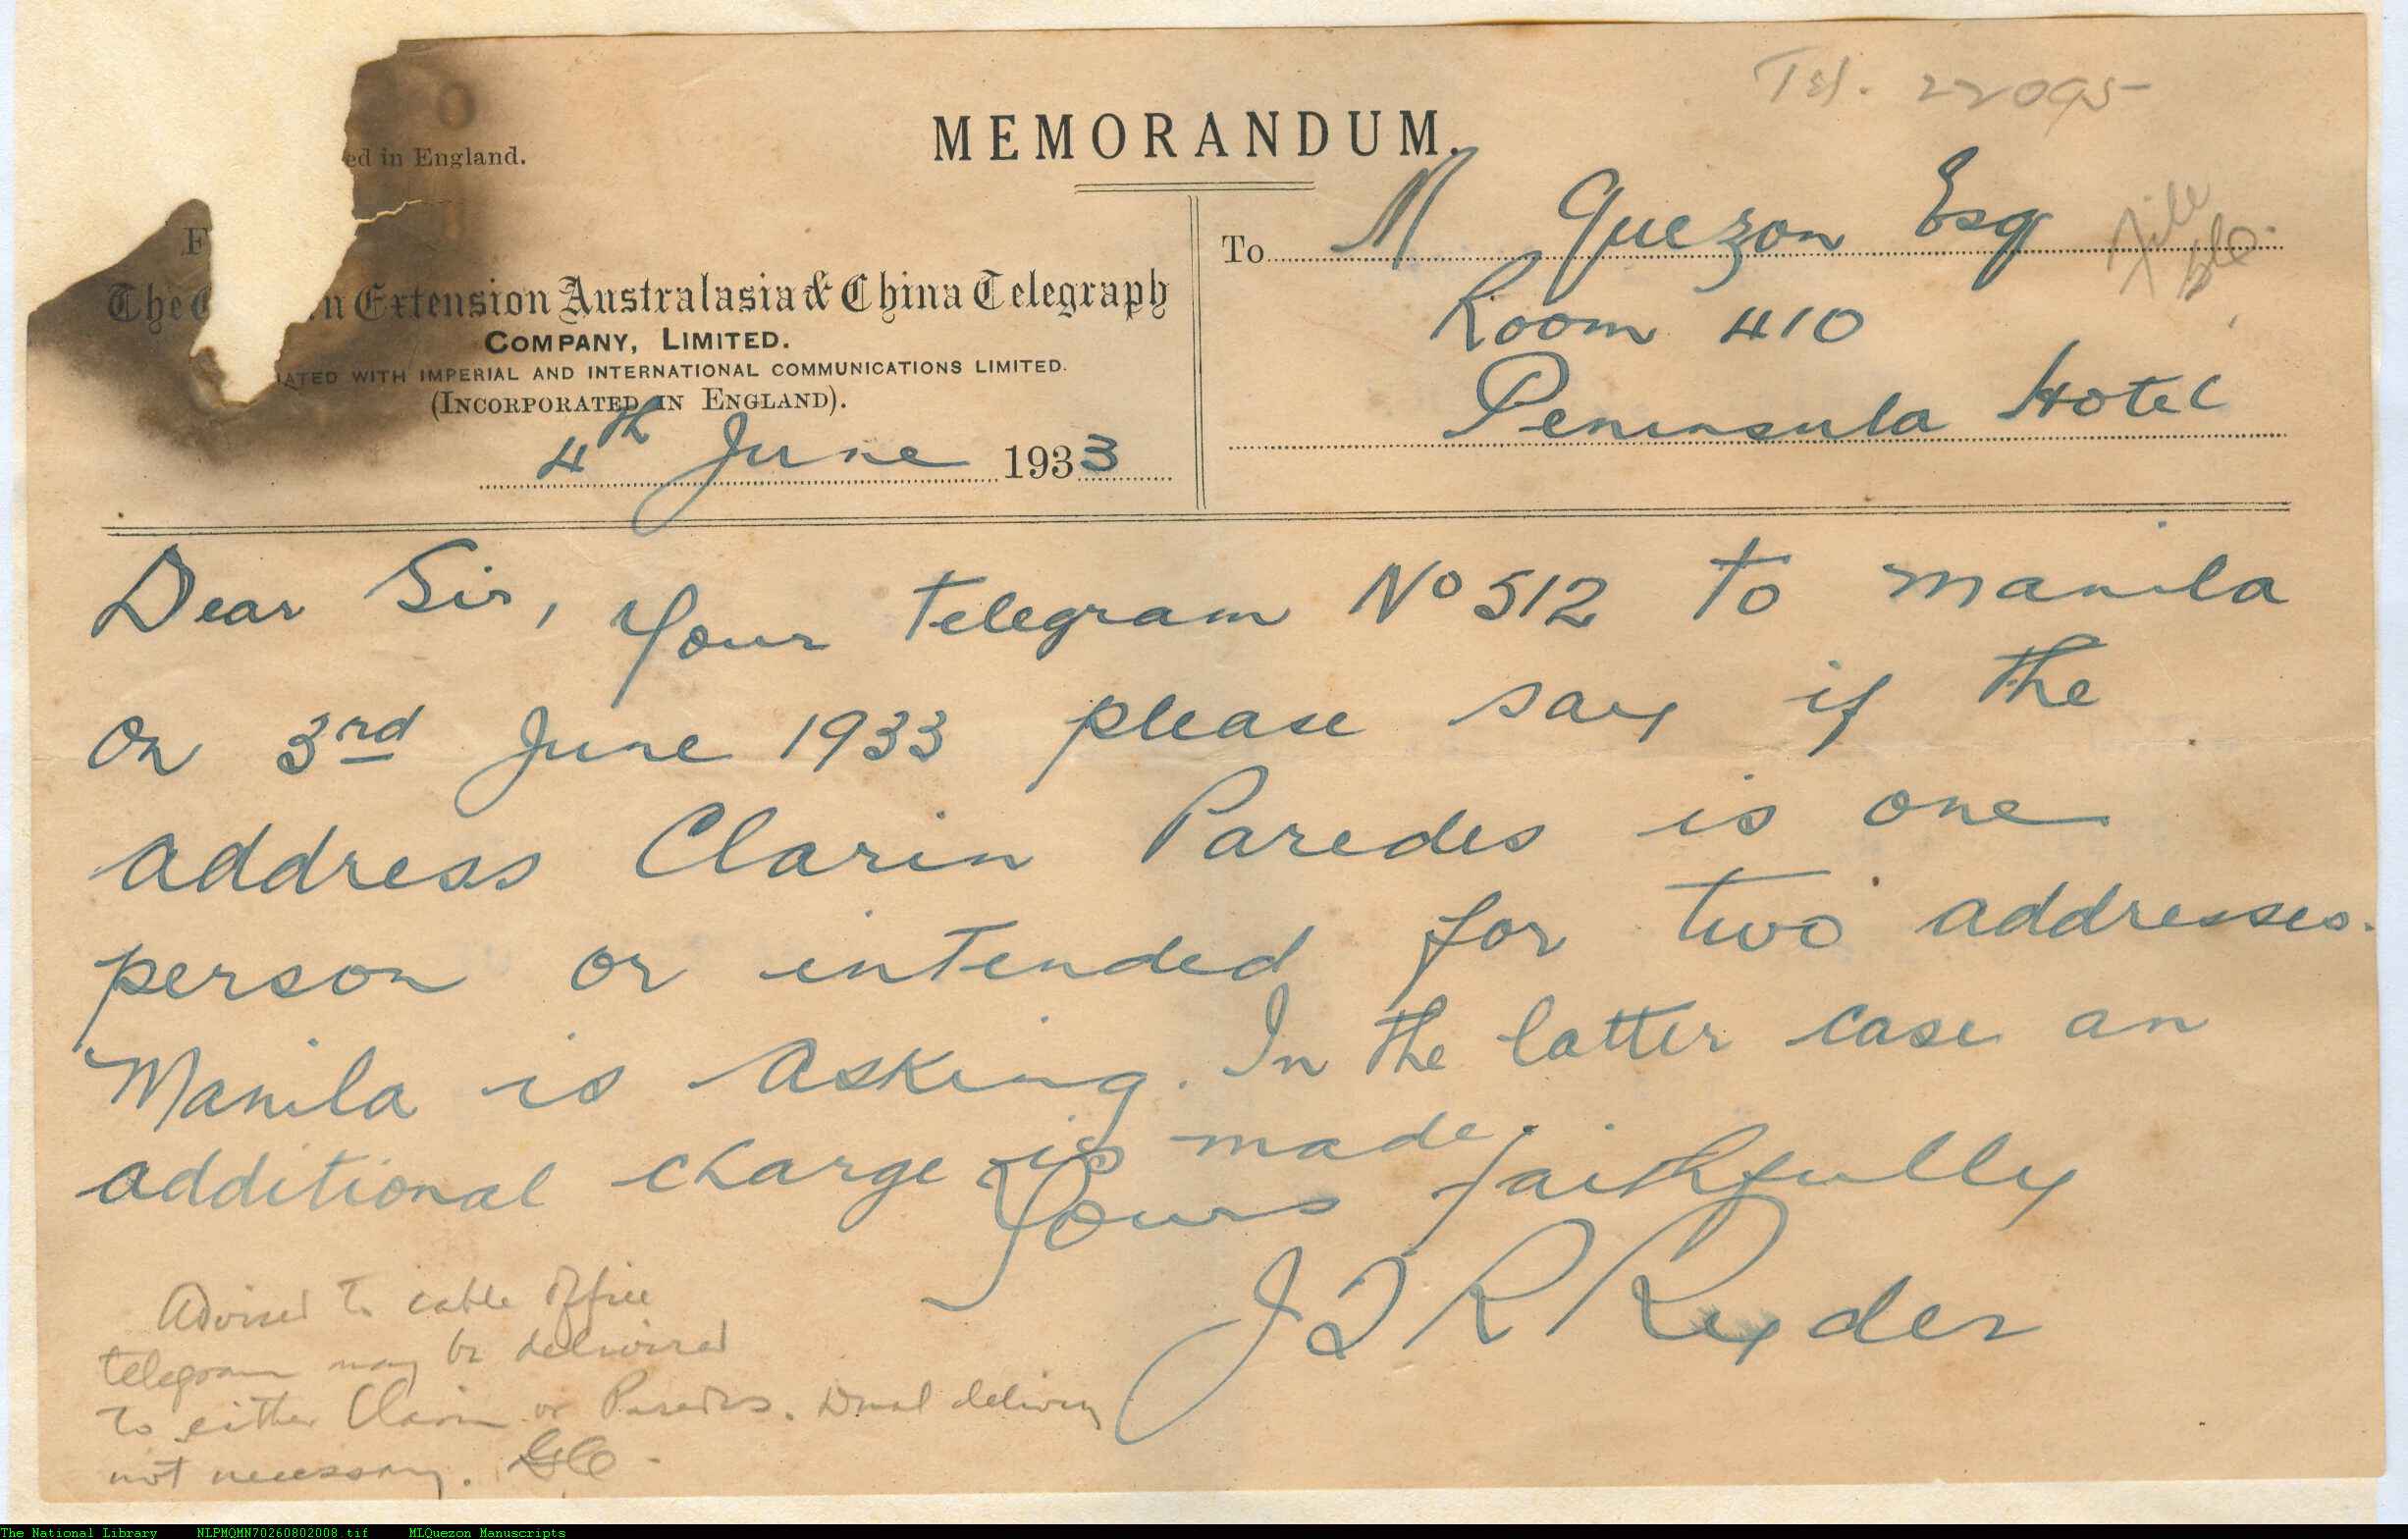 Tel. 22095
ed in England.
MEMORANDUM.
F
The n Extension Australasia & China Telegraph
COMPANY, LIMITED.
IATED WITH IMPERIAL AND INTERNATIONAL COMMUNICATIONS LIMITED.
(INCORPORATED IN ENGLAND).
4th June 1933
To M Quezon Esq
Room 410
Peninsula Hotel
File
Dear Sir, Your telegram No 512 to Manila
on 3rd June 1933 please say if the
address Clarin Paredes is one
person or intended for two addresses.
Manila is asking. In the latter case an
additional charge is made.
Yours faithfully
J Ryder
Advised to cable office
telegram may be delivered
to either Clarin or Paredes. Dual delivery
not necessary.
The National Library NLPMQMN70260802008.tif MLQuezon Manuscripts